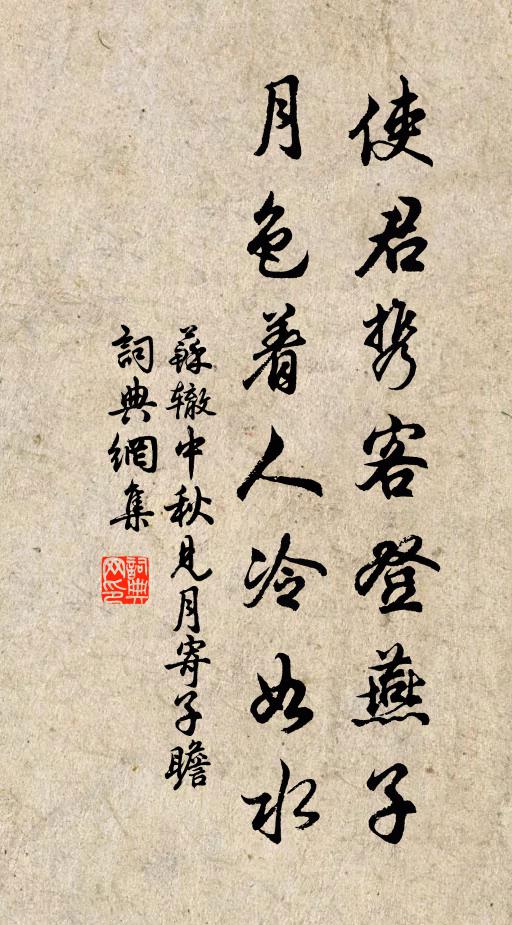 使君携客登燕子
月色着人冷如水
蘇辙中秋見月寄子瞻
詞典網集
詞典
网印